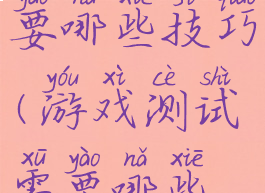 yào nǎ xiē jì qiǎo
要哪些技巧
yóu xì cè shì
(游戏测试
xū yào nǎ xiē
需要哪些